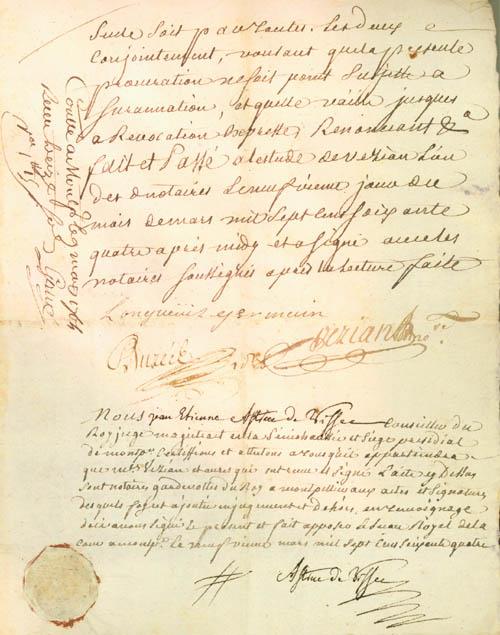 Sude Soit pau routes. Les deux
conjointement, voulant que la presente
procuration ne soit point Sujette a
Surannation, et quelle vaille jusques
a Revocation Expresse Renoncant &a
fait et Passé a lestude de vezian L'un
des d notaires Le neufvieme jour du
mois de mars mil Sept Cens Soixante
quatre après midy et a Signé avec les
notaires Soussignés apres la Lecture faite
Longueuil germain
vezian
Nous jean Etienne Astruc de Vissec Conseiller du
Roy juge magistrat en la Senechaussée et Siege presidial
de montp.er Certiffions et attestons a tous quil appartiendra
que me vezian et qui ont reçu et Signé L'acte cy dessus
Sont notaires gardenottes du Roy a montpellier aux actes et Signatures
desquels foy est ajoutée en jugement et dehors, en temoignage
de ce avons Signé Le présent et fait apposer le Sceau Royal de la
Cour a montp.er Le neufvieme mars mil Sept Cens Soixante quatre
Astruc de Vissec
Conllé a Montp.er Le 9 mars 1764
Reçu treize Sols